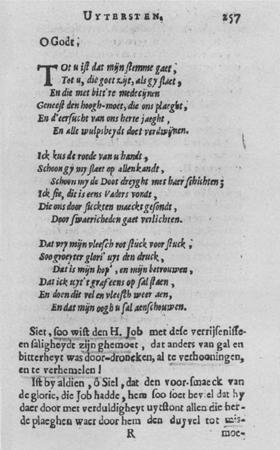 UYTERSTEN. 257
O Godt,
TOt u ist dat mijn stemme gaet,
Tot u, die goet zijt, als gy slaet,
En die met bitt're medecijnen
Geneest den hoogh-moet, die ons plaeght,
En d'eersucht van ons herte jaeght,
En alle wulpsheydt doet verdwijnen.
Ick kus de roede van u handt,
Schoon gy my slaet op allen kandt,
Schoon my de Doot dreyght met haer schichten;
Ick sie, dit is eens Vaders vondt,
Die ons door sieckten maeckt gesondt,
Door swaericheden gaet verlichten.
Dat vry mijn vleesch rot stuck voor stuck,
Soo grooter glori' uyt den druck,
Dat is mijn hop', en mijn betrouwen,
Dat ick uyt'graf eens op sal staen,
En doen dit vel en vleesch weer aen,
En dat mijn oogh u sal aenschouwen.
Siet, soo wist den H. Job met dese verrijsenisse
en saligheydt zijn ghemoet, dat anders van gal en
bitterheyt was door-droncken, al te verhooningen,
en te verhemelen!
Ist by aldien, ô Siel, dat den voor-smaeck van
de glorie, die Job hadde, hem soo beviel dat hy
daer door met verduldigheyt uystont allen die her-
de plaeghen waer door hem den duyvel tot mis-
R moe-